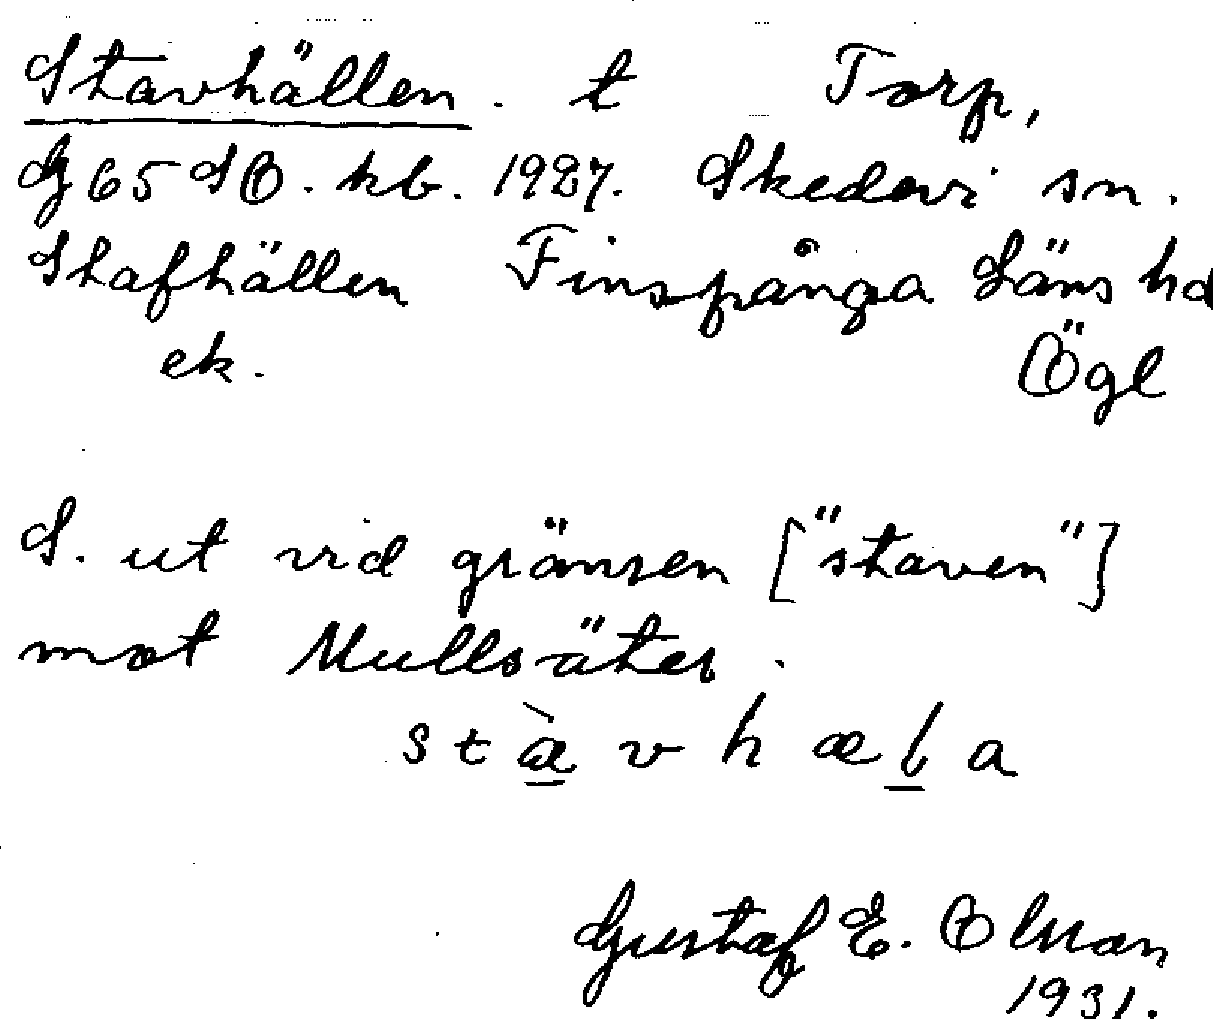 Stavhällen . t Torp,
G 65 SO. kb. 1927. Skedevi sn.
Stafhällen Finspånga Läns hd
ek. Ögl
S. ut vid gränsen ["staven"]
mot Mullsäter.
s t æ̀ v h æ l a
Gustaf E. Olsson
1931.